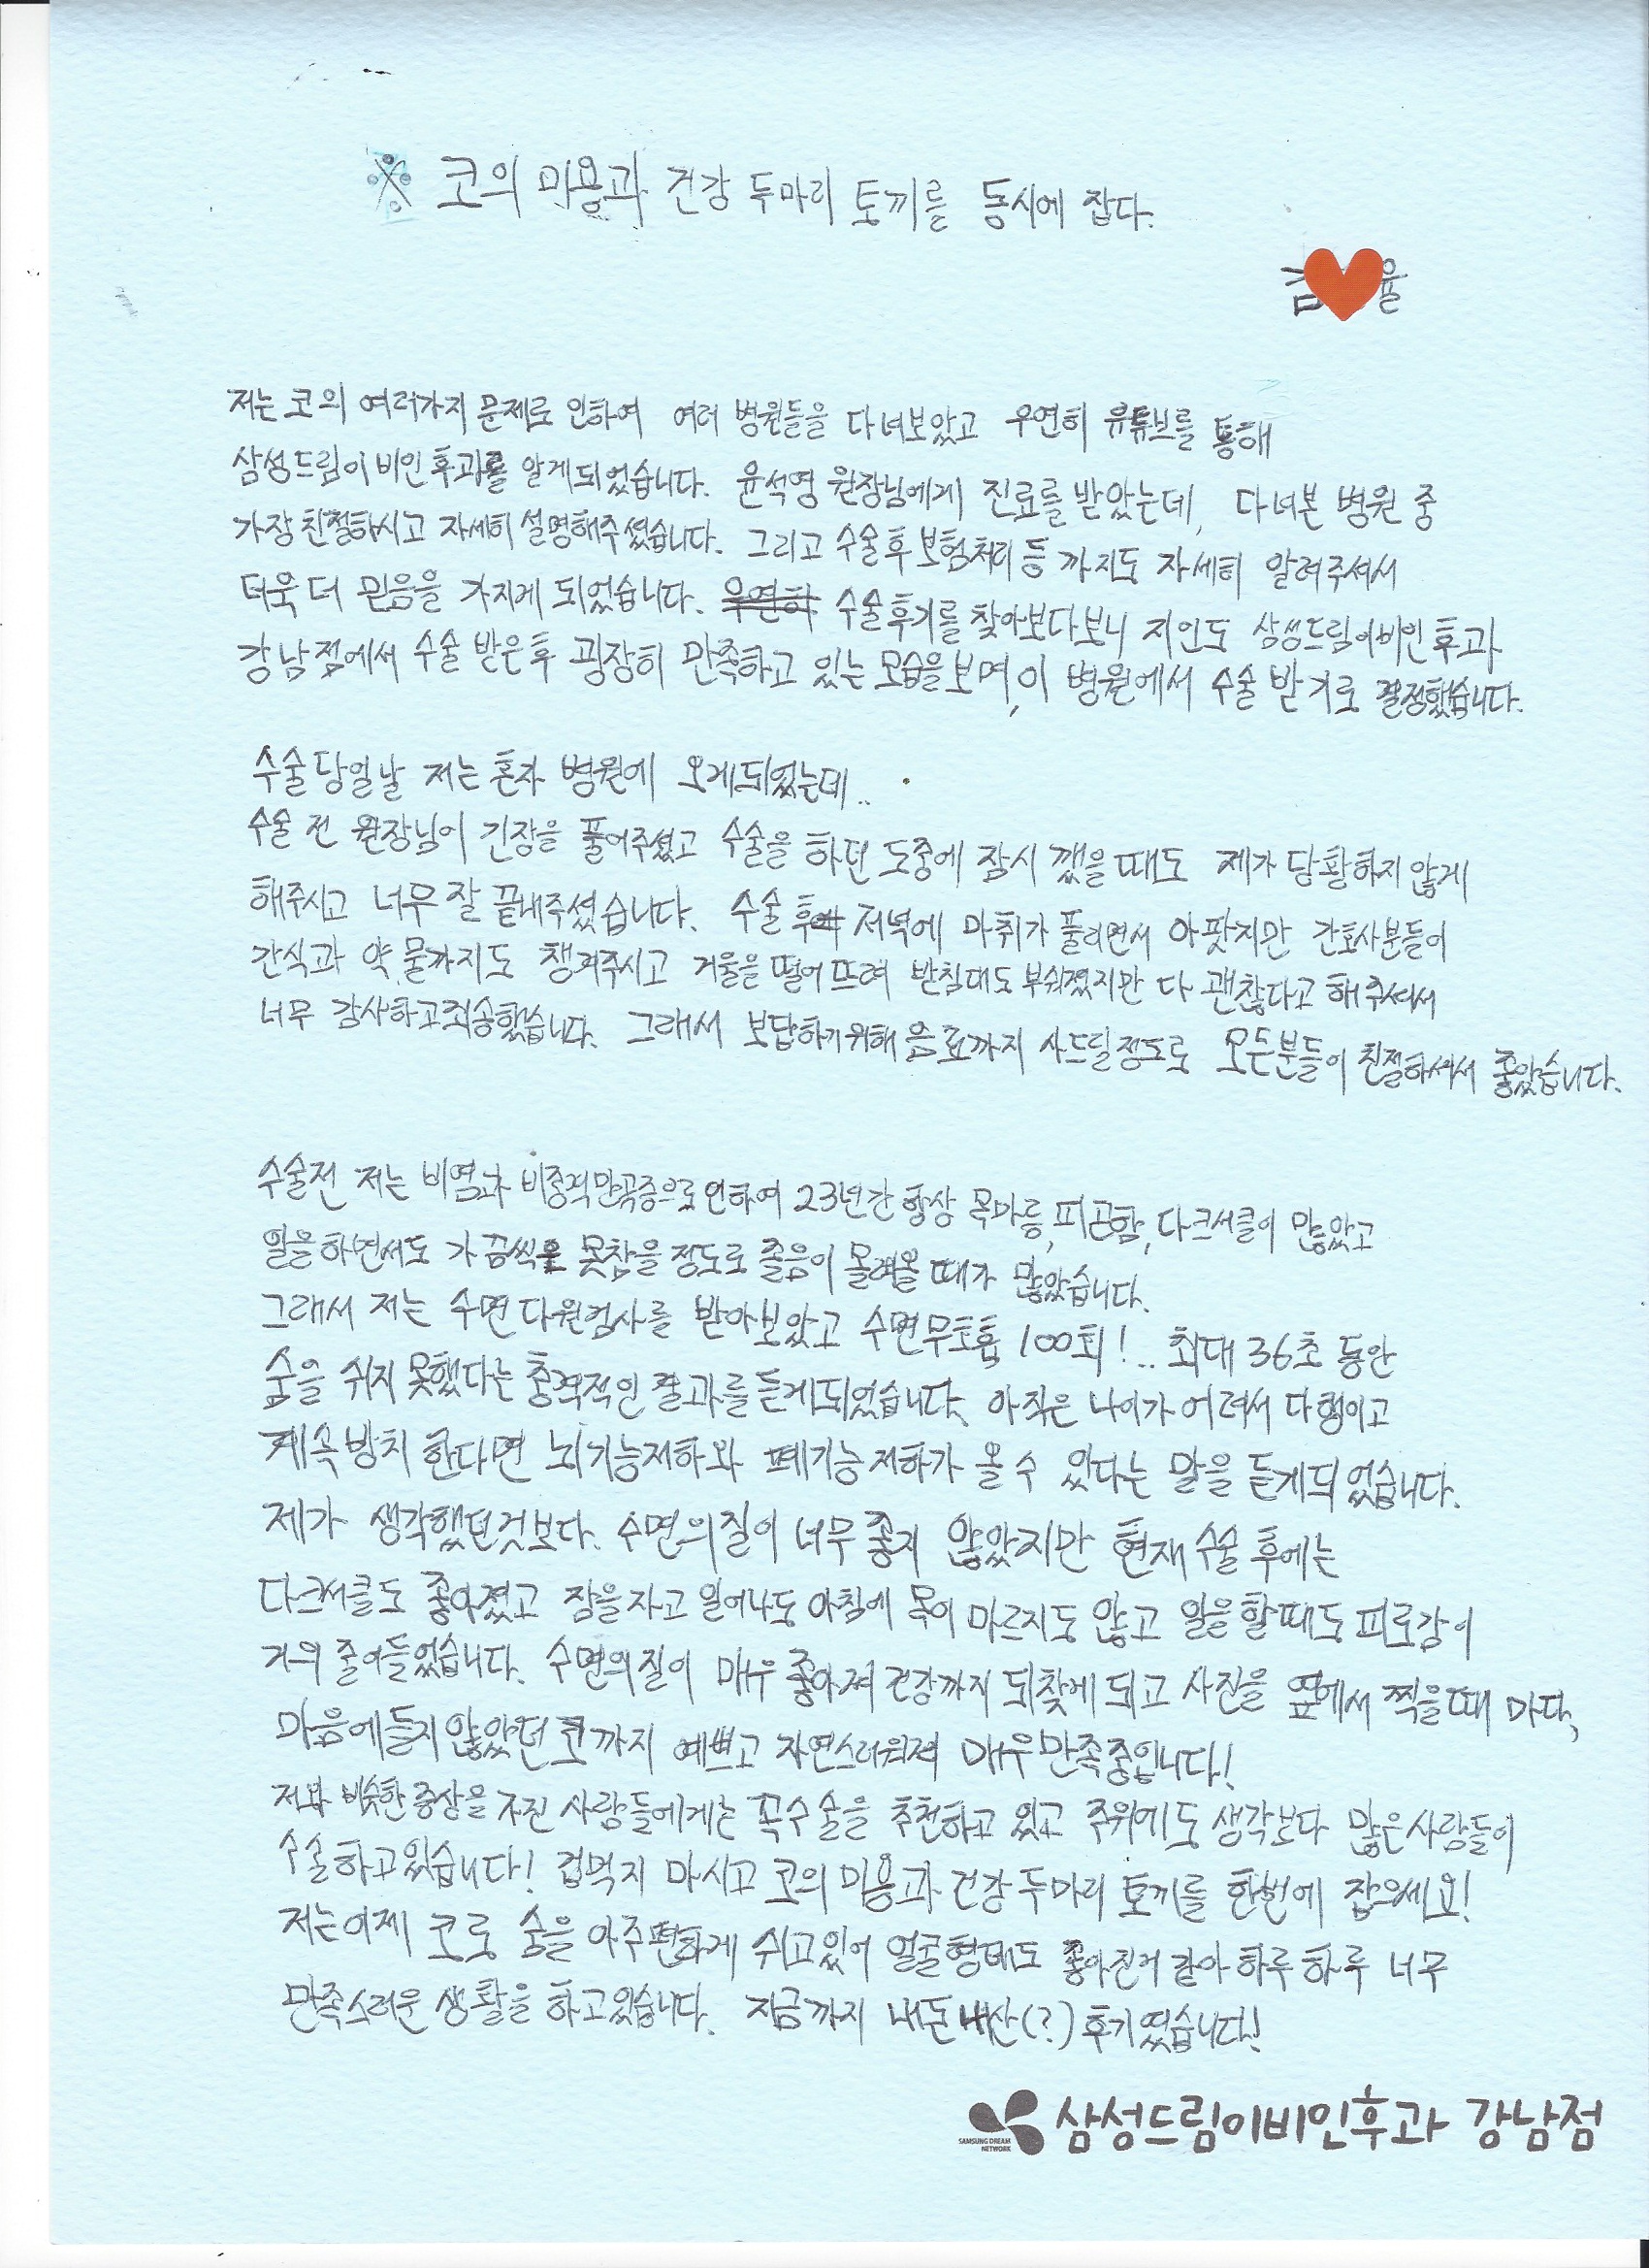 ※ 코의 미용과 건강 두마리 토끼를 동시에 잡다.
김 율
저는 코의 여러가지 문제로 인하여 여러 병원들을 다녀보았고 우연히 유튜브를 통해
삼성드림이비인후과를 알게되었습니다. 윤석영 원장님에게 진료를 받았는데, 다녀본 병원 중
가장 친절하시고 자세히 설명해주셨습니다. 그리고 수술후 보험처리 등 까지도 자세히 알려주셔서
더욱 더 믿음을 가지게 되었습니다. 우연히 수술후기를 찾아보다보니 지인도 삼성드림이비인후과
강남점에서 수술 받은후 굉장히 만족하고 있는 모습을 보며, 이 병원에서 수술 받기로 결정했습니다.
수술당일날 저는 혼자 병원에 오게되었는데..
수술 전 원장님이 긴장을 풀어주셨고 수술을 하던 도중에 잠시 깼을때도 제가 당황하지 않게
해주시고 너무 잘 끝내주셨습니다. 수술 후 저녁에 마취가 풀리면서 아팟지만 간호사분들이
간식과 약, 물까지도 챙겨주시고 거울을 떨어뜨려 받침대도 부숴졌지만 다 괜찮다고 해주셔서
너무 감사하고죄송했습니다. 그래서 보답하기위해 음료까지 사드릴정도로 모든분들이 친절하셔서 좋았습니다.
수술전 저는 비염과 비중격만곡증으로인하여 23년간 항상 목마름, 피곤함, 다크서클이 많았고
일을하면서도 가끔씩은 못참을 정도로 졸음이 몰려올 때가 많았습니다.
그래서 저는 수면다원검사를 받아보았고 수면무호흡 100회!.. 최대 36초 동안
숨을 쉬지 못했다는 충격적인 결과를 듣게되었습니다. 아직은 나이가 어려서 다행이고
계속 방치 한다면 뇌기능저하와 폐기능저하가 올 수 있다는 말을 듣게되었습니다.
제가 생각했던것보다. 수면의질이 너무 좋지 않았지만 현재 수술 후에는
다크써클도 좋아졌고 잠을자고 일어나도 아침에 목이 마르지도 않고 일을할때도 피로감이
거의 줄어들었습니다. 수면의질이 매우 좋아져 건강까지 되찾게 되고 사진을 옆에서 찍을때 마다,
마음에들지않았던 코까지 예쁘고 자연스러워져 매우만족중입니다!
저와 비슷한증상을 가진 사람들에게는 꼭수술을 추천하고 있고 주위에도 생각보다 많은사람들이
수술하고있습니다! 겁먹지 마시고 코의 미용과 건강 두마리 토끼를 한번에 잡으세요!
저는이제 코로 숨을 아주편하게 쉬고있어 얼굴형태도 좋아진거 같아 하루하루 너무
만족스러운 생활을 하고있습니다. 지금까지 내돈내산(?)후기였습니다!
SAMSUNG DREAM NETWORK 삼성드림이비인후과 강남점